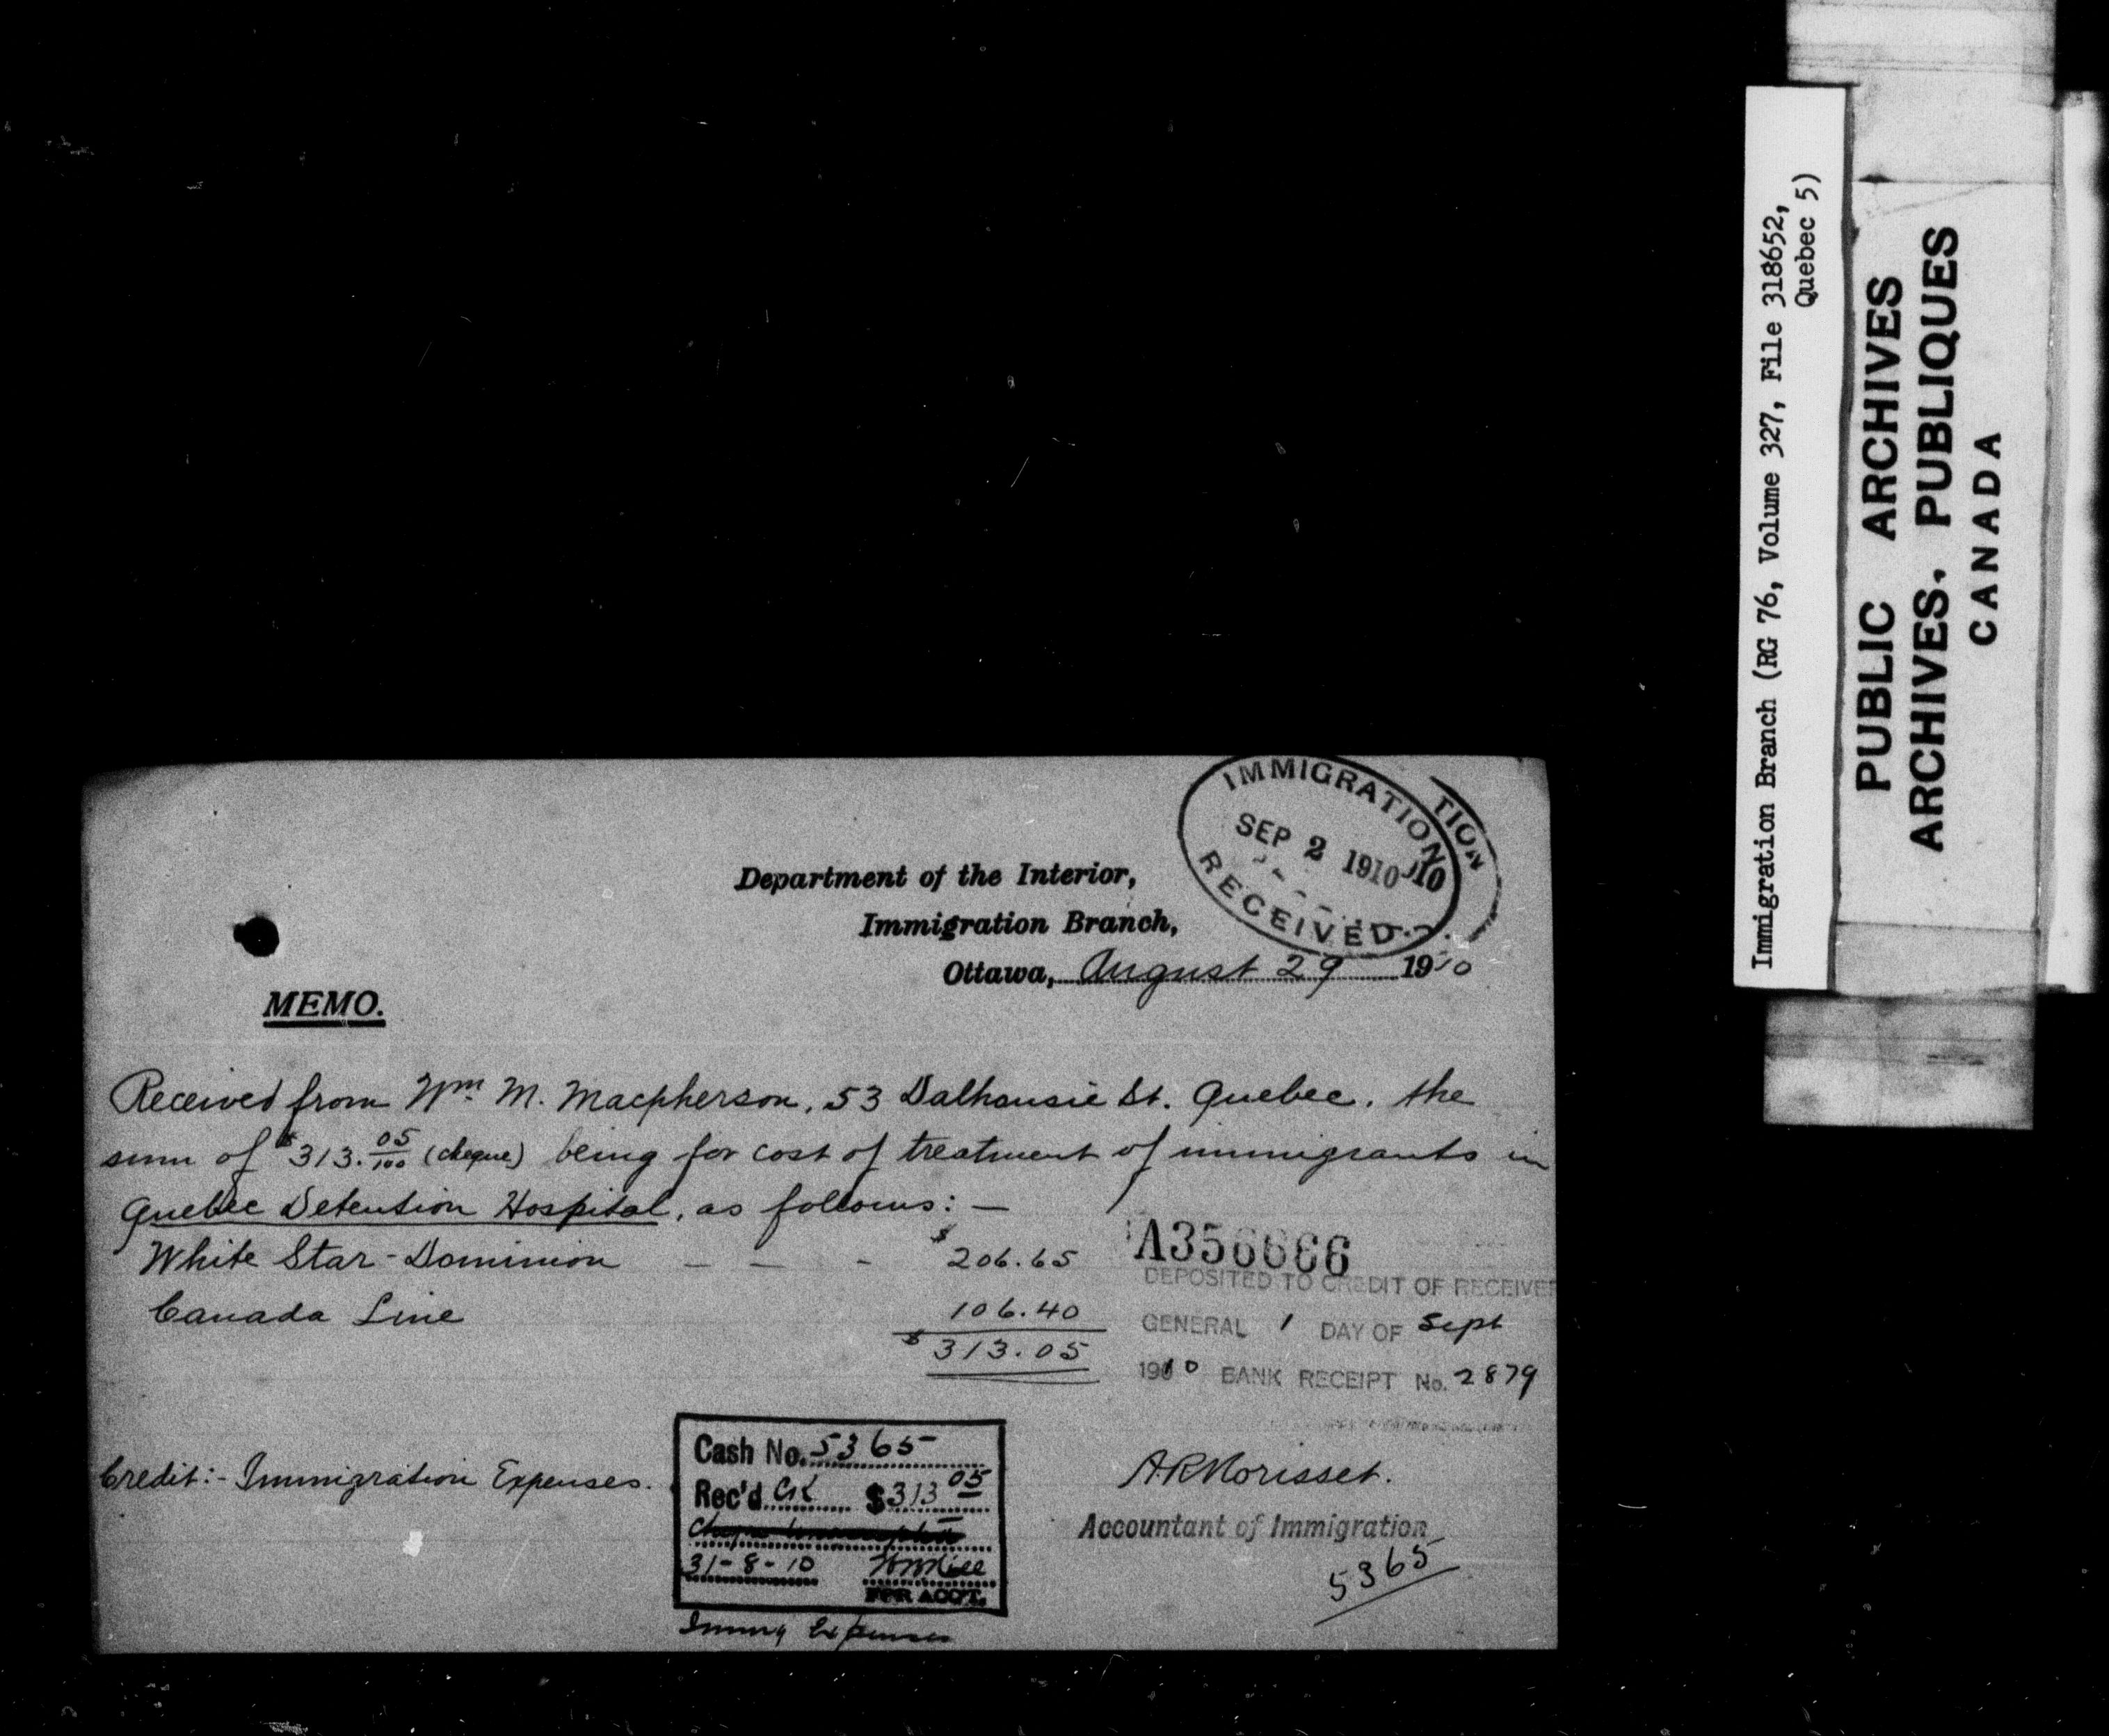 Immigration Branch (RG 76, Volume 327, File 318652,
Quebec 5)
PUBLIC ARCHIVES
ARCHIVES PUBLIQUES
CANADA
IMMIGRATION
SEP 2 1910
RECEIVED
TION
10
Department of the Interior,
Immigration Branch,
Ottawa, August 29 1910
MEMO.
Received from Wm. M. Macpherson, 53 Dalhousie St. Quebec, the
sum of $313. 05/100 (cheque) being for cost of treatment of immigrants in
Quebec Detention Hospital, as follows: —
White Star-Dominion — — - $206.65
Canada Line 106.40
$313.05
A356666
DEPOSITED TO CREDIT OF RECEIVER
GENERAL 1 DAY OF Sept
1910 BANK RECEIPT No. 2879
Credit:- Immigration Expenses.
Cash No. 5365
Rec'd Ck $313 05
31-8-10
FOR ACC'T.
Immig Expenses
A.R. Morisset.
Accountant of Immigration
5365